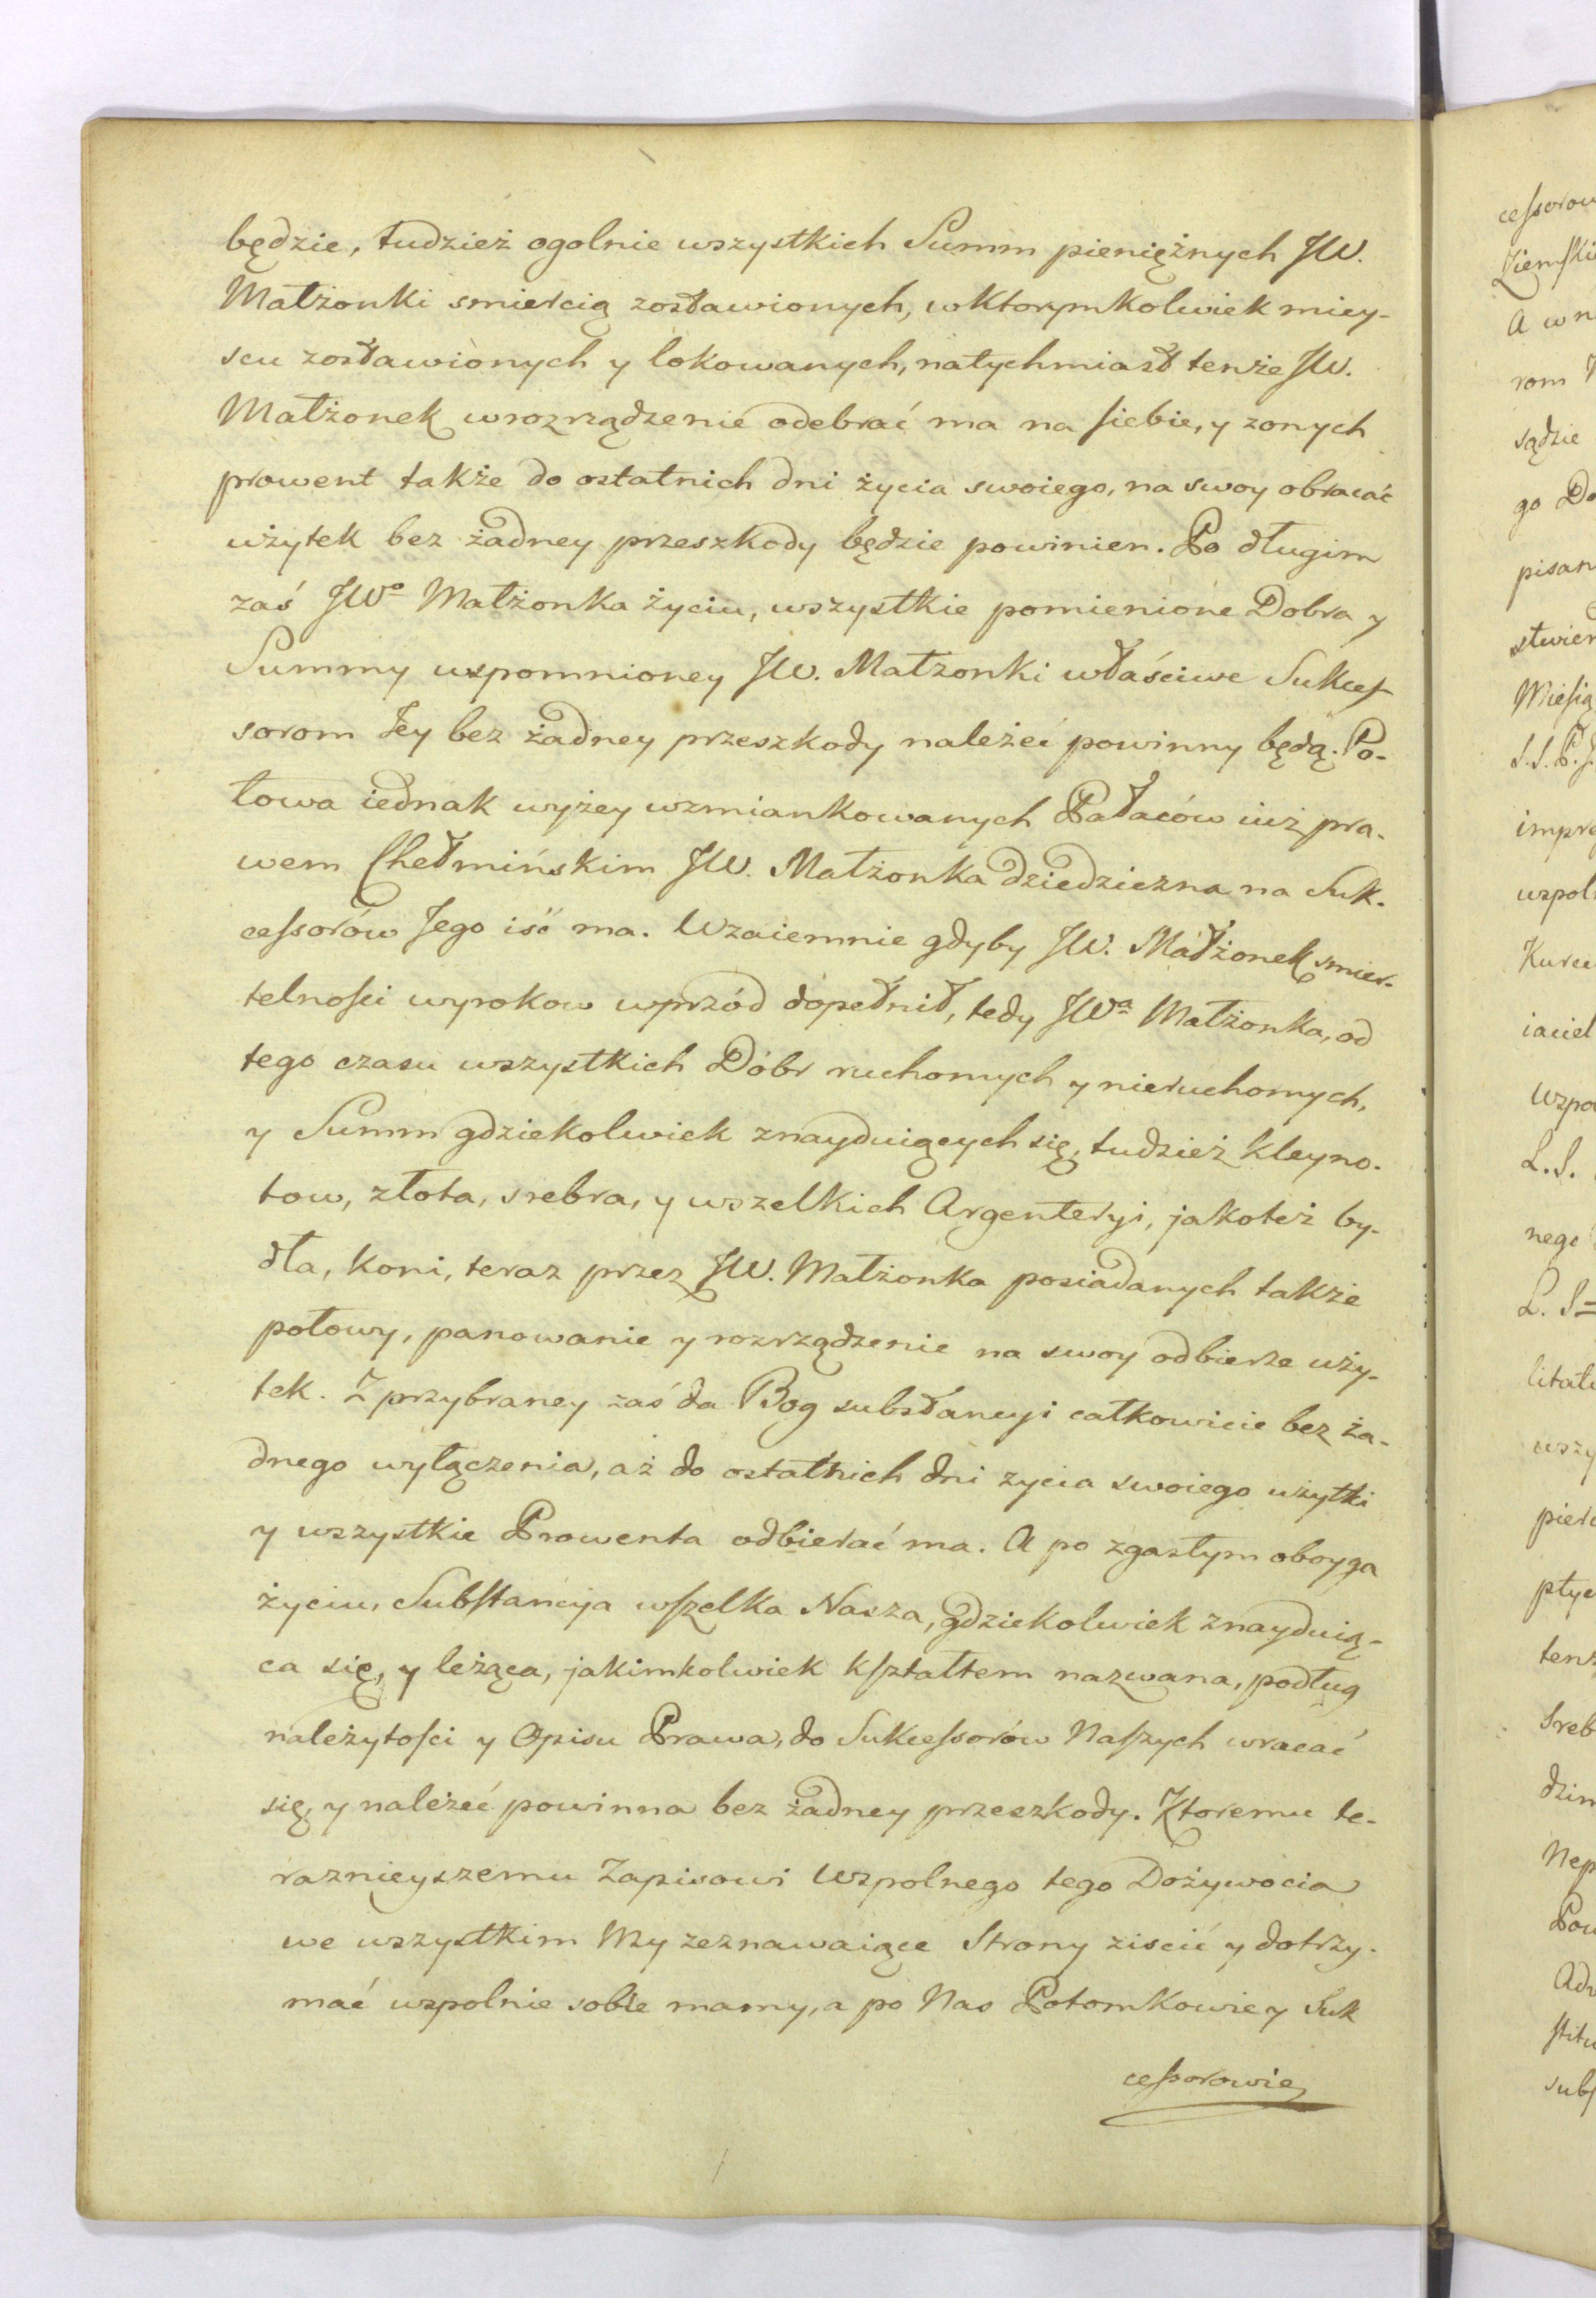 będzie, tudzież ogolnie wszystkich Summ pieniężnych JW.
Małżonki smiercią zostawionych, w ktorymkolwiek miey-
scu zostawionych y lokowanych, natychmiast tenże JW.
Małżonek w rozrządzenie odebrać ma na siebie, y z onych
prowent także do ostatnich dni życia swoiego, na swoy obracać
użytek bez żadney przeszkody będzie powinien. Po długim
zaś JWo Małżonka życiu, wszystkie pomienione Dobra y
Summy wspomnioney JW. Małzonki właściwe Sukces-
sorom Jey bez żadney przeszkody należeć powinny będą. Po-
łowa iednak wyżey wzmiankowanych Pałaców iuż pra-
wem Chełmińskim JW. Małżonka dziedziczna na Suk-
cessorów Jego iść ma. Wzaiemnie gdyby JW. Małżonek smier-
telności wyrokow wprzód dopełnił, tedy JWa Małżonka, od
tego czasu wszystkich Dóbr ruchomych y nieruchomych,
y Summ gdziekolwiek znayduiących się, tudzież kleyno-
tow, złota, srebra, y wszelkich Argenteryi, jakoteż by-
dła, koni, teraz przez JW. Małżonka posiadanych także
połowy, panowanie y rozrządzenie na swoy odbierze uży-
tek. Z przybraney zaś da Bog substancyi całkowicie bez ża-
dnego wyłączenia, aż do ostatnich dni zycia swoiego użytki
y wszystkie Prowenta odbierać ma. A po zgasłym oboyga
życiu, Substancya wszelka Nasza, gdziekolwiek znayduią-
ca się, y leżąca, jakimkolwiek kształtem nazwana, podług
należytości y Opisu Prawa, do Sukcessorów Naszych wracać
się, y należeć powinna bez żadney przeszkody. Ktoremu te-
raznieyszemu Zapisowi Wspolnego tego Dożywocia
we wszystkim My zeznawaiące Strony ziscić y dotrzy-
mać wspolnie sobie mamy, a po Nas Potomkowie y Suk
cessorowie
cessorow
Ziemski
A w n
rom
sądzie
go Do
pisan
stwier
Miesią
S. S. P. J.
impre
wspol
Kurcu
iaciel
Wspo
L. S.
nego
L. S=
litate
wszy
pierc
płyc
tenż
Sreb
dzin
Nep
Pow
Adv
stitu
subs